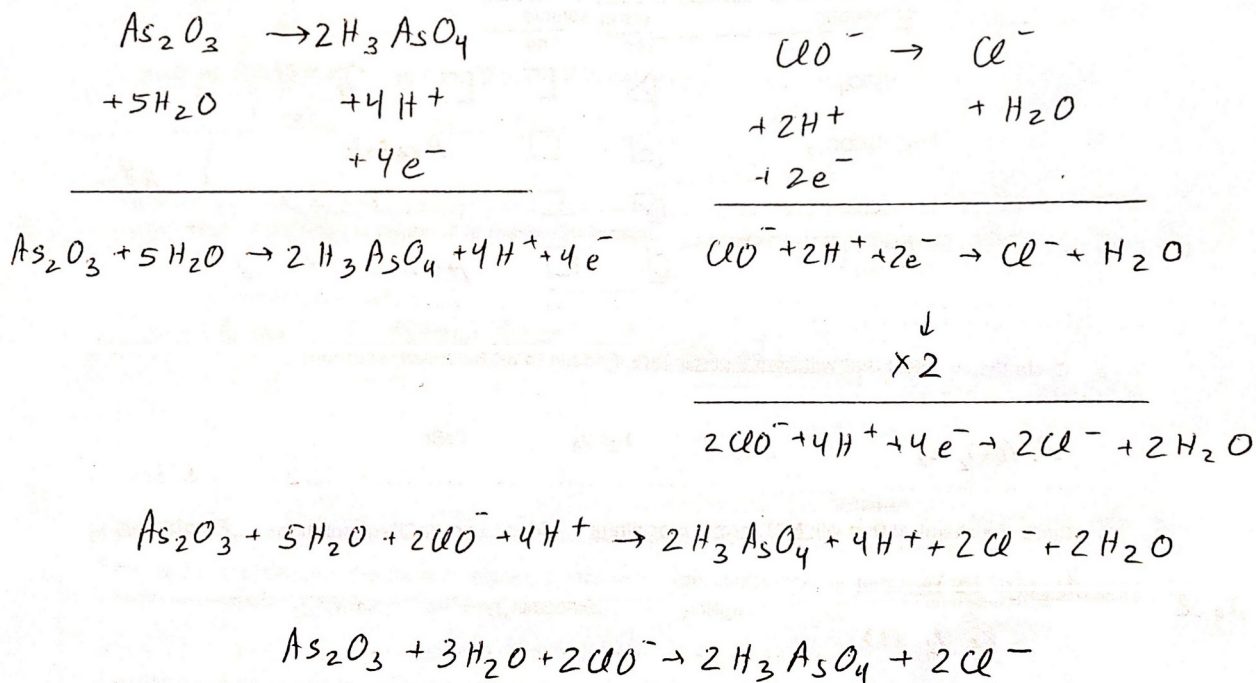 As₂O₃ → 2H₃AsO₄
+5H₂O +4H⁺
+4e⁻
As₂O₃ + 5H₂O → 2H₃AsO₄ + 4H⁺ + 4e⁻
ClO⁻ → Cl⁻
+2H⁺ + H₂O
+ 2e⁻
ClO⁻ + 2H⁺ + 2e⁻ → Cl⁻ + H₂O
↓
×2
2ClO⁻ + 4H⁺ + 4e⁻ → 2Cl⁻ + 2H₂O
As₂O₃ + 5H₂O + 2ClO⁻ + 4H⁺ → 2H₃AsO₄ + 4H⁺ + 2Cl⁻ + 2H₂O
As₂O₃ + 3H₂O + 2ClO⁻ → 2H₃AsO₄ + 2Cl⁻